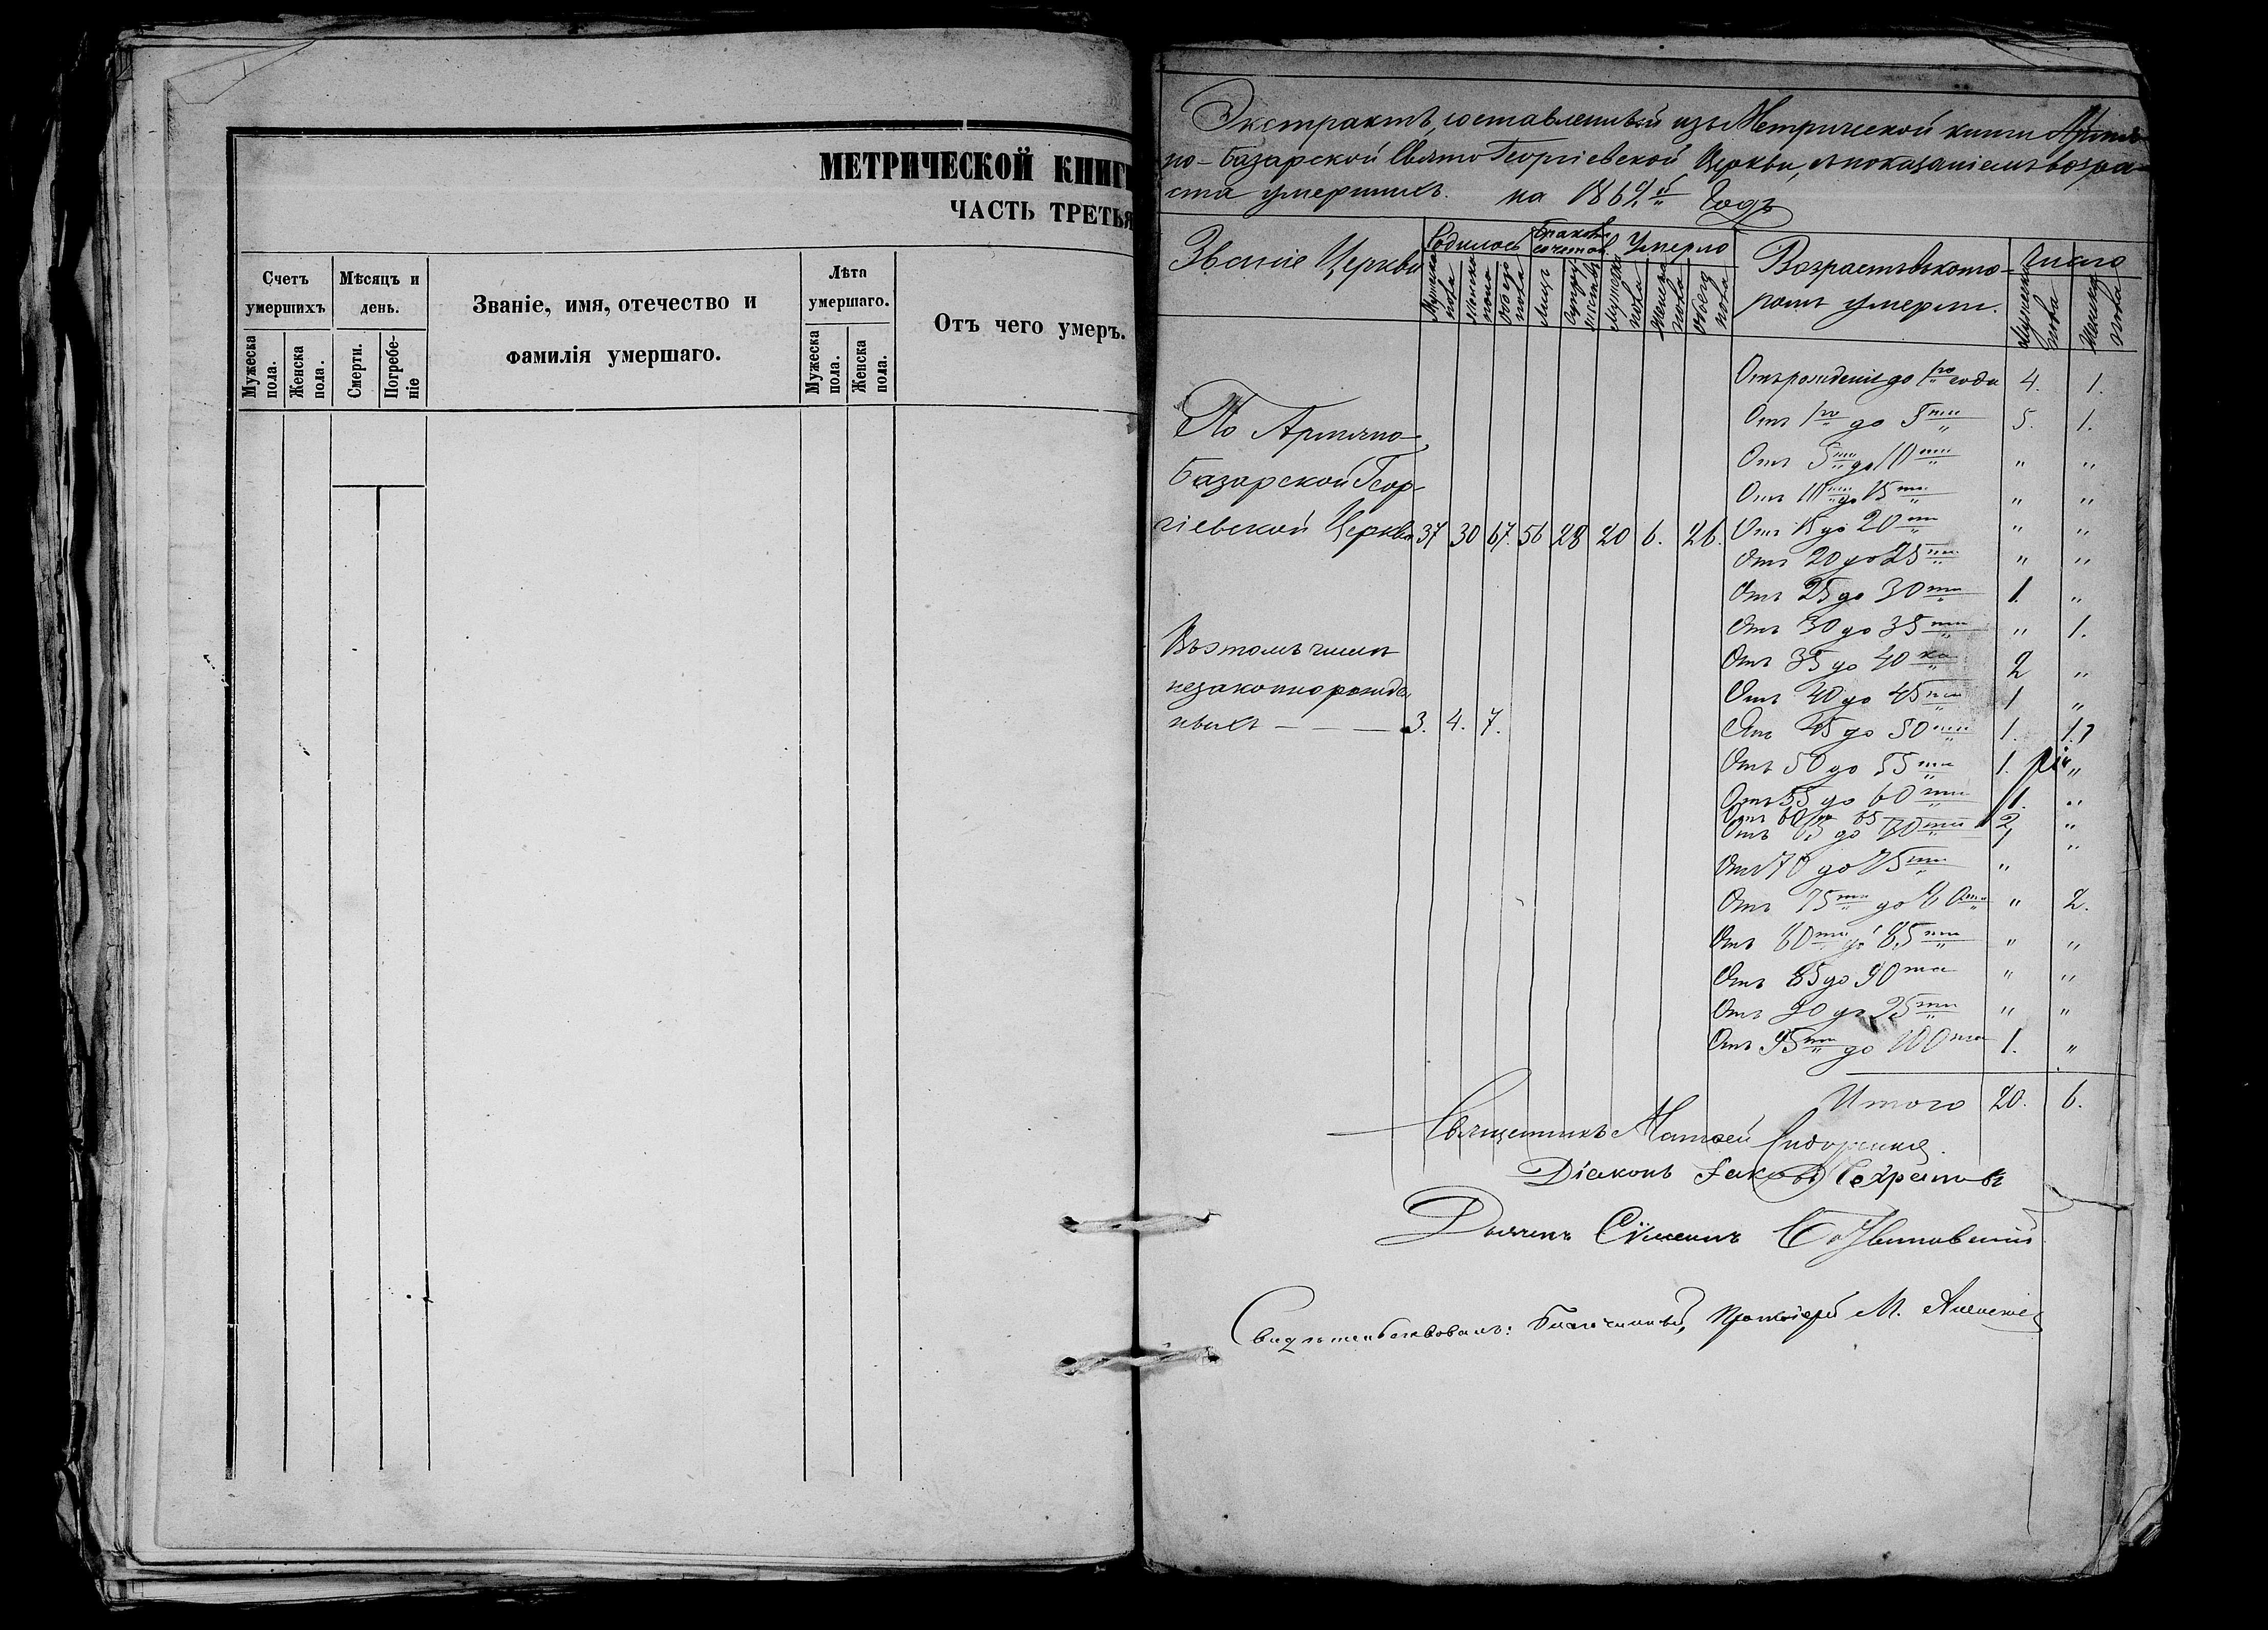 МЕТРИЧЕСКОЙ КНИГ
ЧАСТЬ ТРЕТЬЯ
Счетъ умершихъ
Мѣсяцъ и день.
Званіе, имя, отечество и фамилія умершаго.
Лѣта умершаго.
Отъ чего умеръ.
Мужеска пола.
Женска пола.
Смерти.
Погребе-ніе
Мужеска пола.
Женска пола.
Экстрактъ, составленный изъ Метрической книги Армя-
но-Базарской Свято Георгіевской Церкви, съ показаніемъ возра-
ста умершихъ. на 186 Годъ
Званіе Церкви
Родилось
Умерло
Возрастъ въ кото-
ромъ умерли.
Число
Мужеска пола
Женска пола
Обоего пола
Лицъ
Супружествъ
Мужеска пола
Женска пола
Обоего пола
Мужеска пола
Женска пола
Отъ рожденія до 1го года 4. 1.
Отъ 1го до 5ти 5. 1.
Отъ 5ти до 10ти " "
Отъ 10ти до 15ти " "
По Армяно-
Базарской Геор-
гіевской Церкви 37 30 67. 56 28 20 6. 26.
Отъ 15 до 20ти " "
Отъ 20 до 25ти " "
Отъ 25 до 30ти 1. "
Отъ 30 до 35ти " 1.
Отъ 35 до 40ка 2 "
Отъ 40 до 45ти 1 "
Въ этомъ числѣ
незаконнорожде
ныхъ — — — 3. 4. 7.
Отъ 45 до 50ти 1. 1.
Отъ 50 до 55ти 1. "
Отъ 55 до 60ти 1. "
Отъ 60 до 65 2 "
Отъ 65 до 70ти 1 "
Отъ 70 до 75ти "
Отъ 75ти до 80ти " 2.
Отъ 80ти до 85ти " "
Отъ 85 до 90та " "
Отъ 90 до 95ти " "
Отъ 95ти до 100та 1. "
Итого 20. 6.
Священникъ Матѳей
Діаконъ Іаковъ
Дьячекъ Сѵмеонъ
Свидѣтельствовалъ: Благочинный, Протоіерей М.